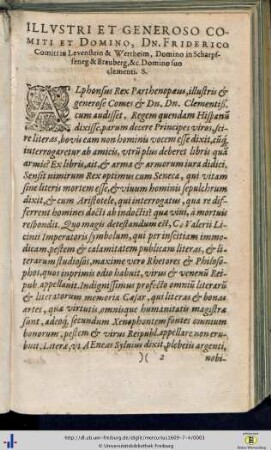 ILLVSTRI ET GENEROSO CO-
MITI ET DOMINO, DN. FRIDERICO
Comiti in Levenstein & Wertheim, Domino in Scharpf-
feneg & Breuberg, &c. Domino suo
clementi. S.
ALphonsus Rex Parthenopæus, illustris &
generose Comes & Dn. Dn. Clementiss.
cum audisset, Regem quendam Hispanũ
dixisse, parum decere Principes viros, sci-
re literas, bovis eam non hominis vocem esse dixit, cũq́;
interrogaretur ab amicis, utrũ plus deberet libris quã
armis? Ex libris, ait, & arma & armorum iura didici.
Sensit nimirum Rex optimus cum Seneca, qui vitam
sine literis mortem esse, & vivum hominis sepulchrum
dixit, & cum Aristotele, qui interrogatus, qua re dif-
ferrent homines docti ab indoctis? qua vivi, à mortuis
respondit. Quo magis detestandum est, C. Valerii Li-
cinii Imperatoris symbolum, qui per inscitiam immo-
dicam, pestem & calamitatem publicam literas, & li-
terarum studiosos, maxime vero Rhetores & Philoso-
phos, quos inprimis odio habuit, virus & venenũ Rei-
pub. appellavit. Indignissimus profecto omniũ literarũ
& literatorum memoria Cæsar, qui literas & bonas
artes, quæ virtutis, omnisque humanitatis magistræ
sunt, adeoq́; secundum Xenophontem fontes omnium
bonorum, pestem & virus Reipubl. appellare non eru-
buit. Literæ, ut Aeneas Sylvius dixit, plebeiis argenti,
)( 2 nobi-
http://dl.ub.uni-freiburg.de/diglit/mercurius1609-7-4/0003
© Universitätsbibliothek Freiburg